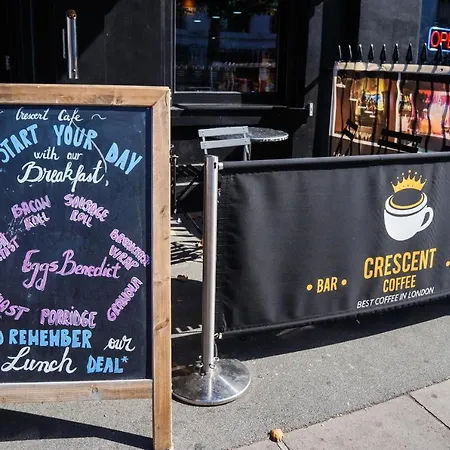 Crescent Cafe
START YOUR DAY
with our
Breakfast
BACON ROLL
SAUSAGE ROLL
BREAKFAST WRAP
Eggs Benedict
GRANOLA
PORRIDGE
REMEMBER our
Lunch DEAL*
CRESCENT
COFFEE
• BAR •
BEST COFFEE IN LONDON
OPE